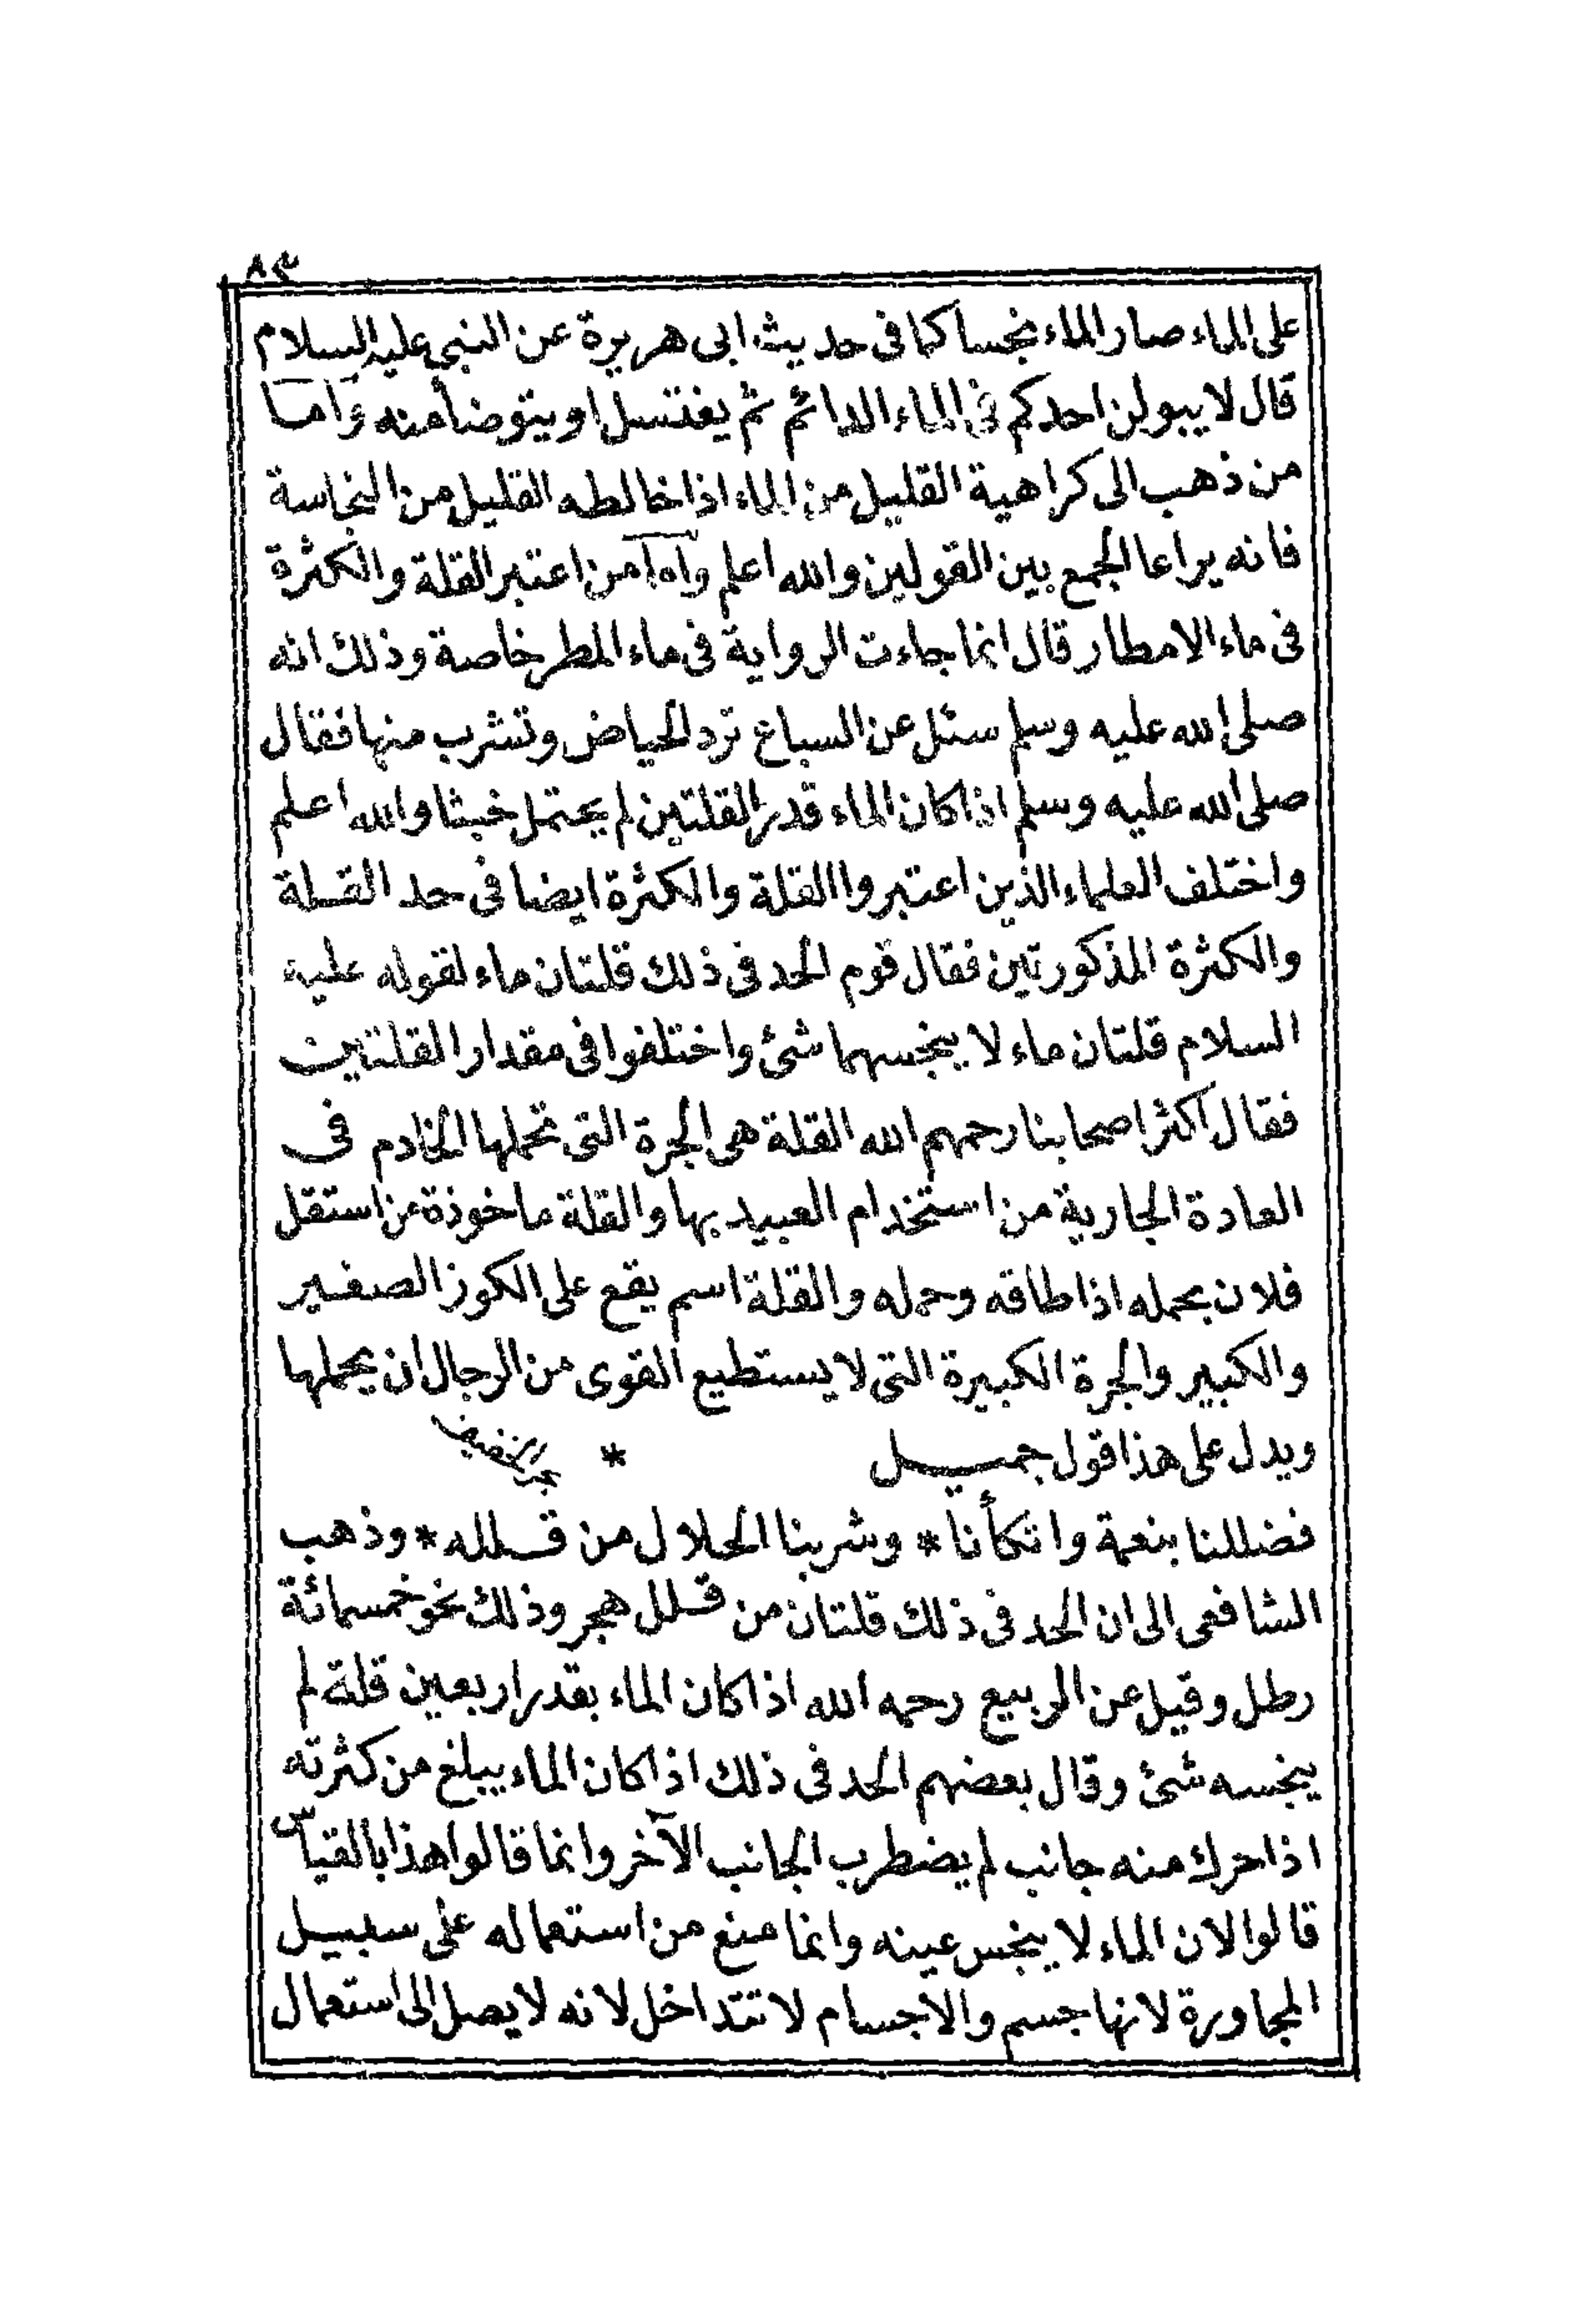 ٨٣
على الماء صار الماء نجسا كما فى حديث ابى هريرة عن النبي عليه السلام
قال لا يبولن احدكم في الماء الدائم ثم يغتسل او يتوضأ منه وأما
من ذهب الى كراهية القليل من الماء اذا خالطه القليل من النجاسة
فانه يراعا الجمع بين القولين والله اعلم وأما من اعتبر القلة والكثرة
فى ماء الامطار قال انما جاءت الرواية فى ماء المطر خاصة وذلك انه
صلى الله عليه وسلم سئل عن السباع ترد الحياض وتشرب منها فقال
صلى الله عليه وسلم اذا كان الماء قدر القلتين لم يحتمل خبثا والله اعلم
واختلف العلماء الذين اعتبروا القلة والكثرة ايضا فى حد القلة
والكثرة المذكورتين فقال قوم الحد فى ذلك قلتان ماء لقوله عليه
السلام قلتان ماء لا ينجسهما شئ واختلفوا فى مقدار القلتين
فقال اكثر اصحابنا رحمهم الله القلة هى الجرة التى تحملها الخادم فى
العادة الجارية من استخدام العبيد بها والقلة ماخوذة من استقل
فلان بحمله اذا طاقه وحمله والقلة اسم يقع على الكوز الصغير
والكبير والجرة الكبيرة التى لا يستطيع القوى من الرجال ان يحملها
ويدل على هذا قول جميل * بحر الخفيف
فضللنا بنعمة واتكأنا * وشربنا الحلال من قلله * وذهب
الشافعى الى ان الحد فى ذلك قلتان من قلل هجر وذلك نحو خمسمائة
رطل وقيل عن الربيع رحمه الله اذا كان الماء بقدر اربعين قلة لم
ينجسه شئ وقال بعضهم الحد فى ذلك اذا كان الماء يبلغ من كثرته
اذا حرك منه جانب لم يضطرب الجانب الآخر وانما قالوا هذا بالقياس
قالوا لان الماء لا ينجس عينه وانما منع من استعماله على سبيل
المجاورة لانها جسم والاجسام لا تتداخل لانه لا يصل الى استعمال